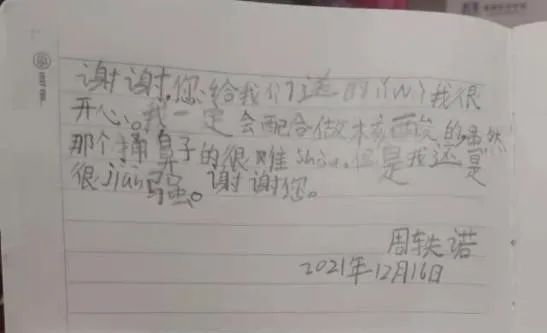 谢谢,您给我们送的li(wù)我很
开心。我一定会配合做核酸的虽然
那个捅鼻子的很难shòu.但是我还是
很jiān强。谢谢您。
周轶诺
2021年12月16日